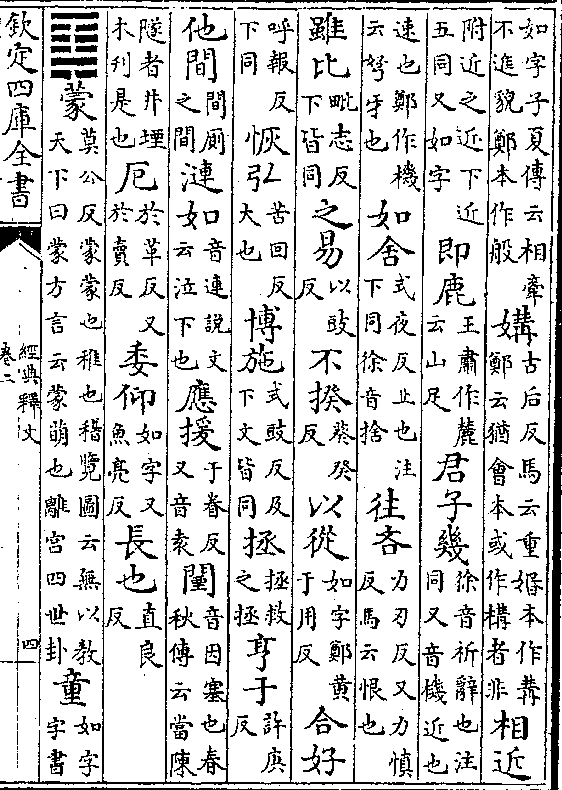 如字子夏傳云相牽不進貌鄭本作般媾古后反馬云重婚本作冓鄭云猶會本或作構者非相近
附近之近下近五同又如字即鹿王肅作麓云山足君子幾徐音祈辭也注同又音機近也
速也鄭作機云弩牙也如舍式夜反止也注下同徐音捨往吝力刃反又力慎反馬云恨也
雖比毗志反下皆同之易以豉反不揆葵癸反以從如字鄭黃于用反合好
呼報反下同恢弘苦回反大也博施式豉反及下文皆同拯拯救之拯亨于許庚反
他間間厠之間漣如音連說文云泣下也應援于眷反又音袁闉音因塞也春秋傳云當陳
隧者井堙木刋是也厄於革反又於賣反委仰如字又魚亮反長也直良反
䷃蒙莫公反蒙蒙也稚也稽覽圖云無以教天下曰蒙方言云蒙萌也離宮四世卦童如字字書
欽定四庫全書
經典釋文
卷二
四